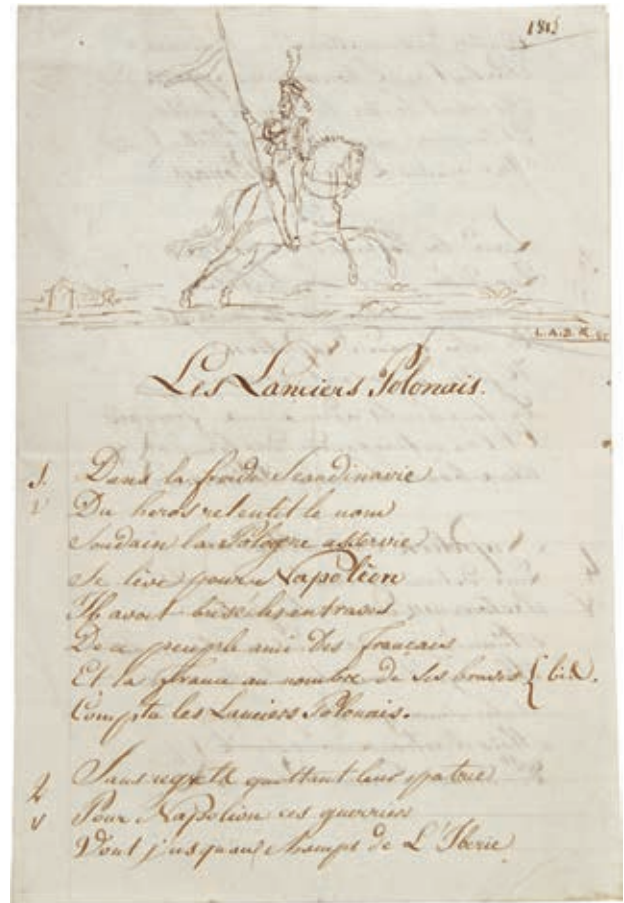 1815
L.A.D.
Les Lanciers Polonais.
1. Dans la froide Scandinavie
Du heros retentit le nom
Soudain la Pologne asservie
Se lève pour Napoléon
Il avait brisé les entraves
De ce peuple ami des français
Et la france au nombre de ses braves { bis.
Compta les Lanciers Polonais.
2 Sans regrets quittant leur patrie
Pour Napoléon ces guerriers
Vont jusqu'aux champs de L'Iberie